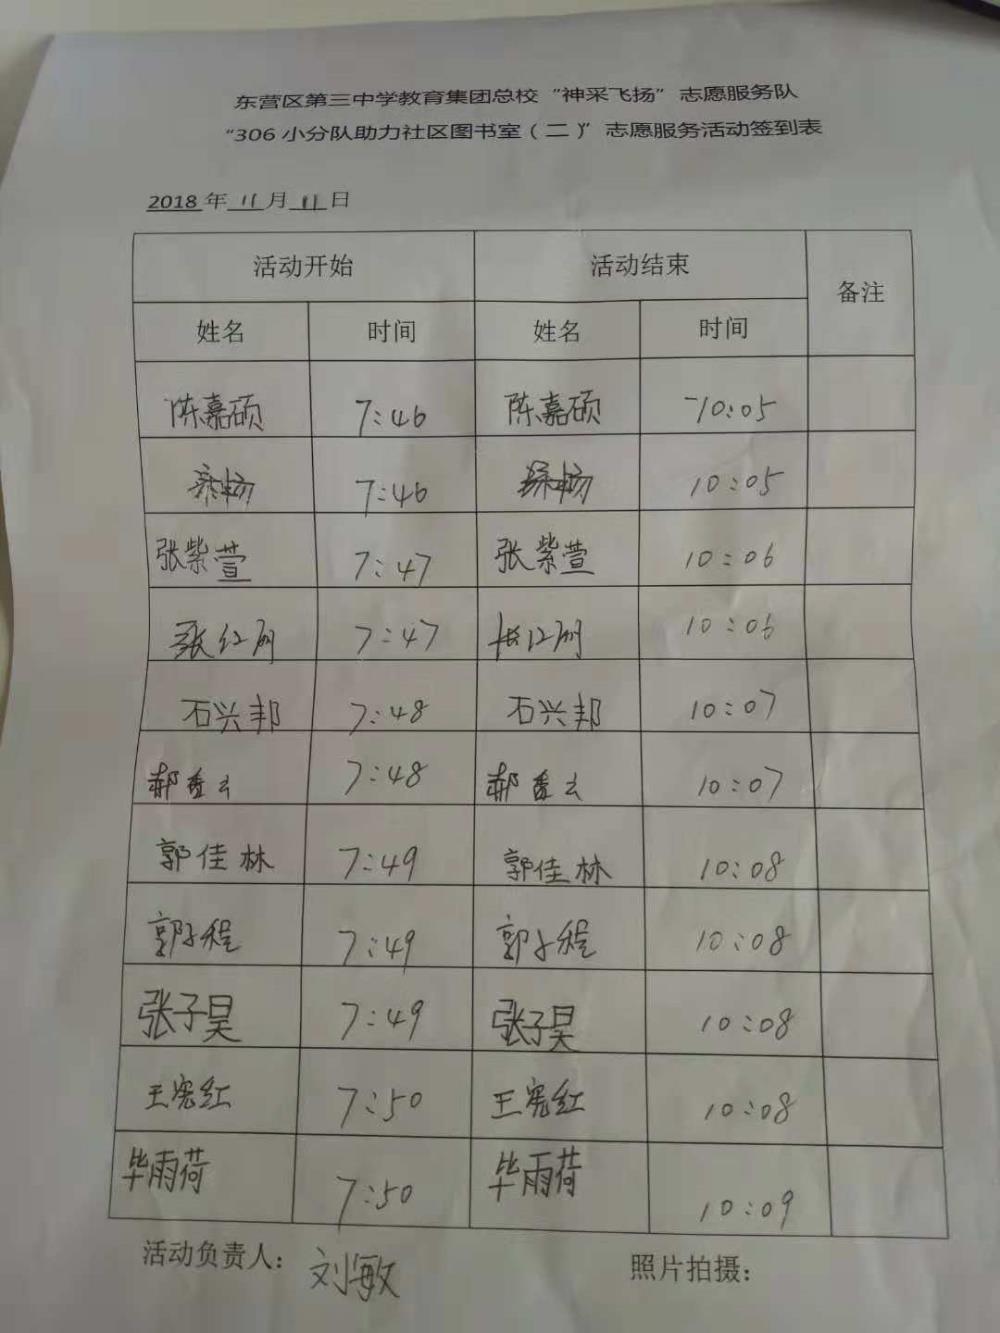 东营区第三中学教育集团总校“神采飞扬”志愿服务队
“306小分队助力社区图书室（二）”志愿服务活动签到表
2018年 11月 11日
活动开始 活动结束 备注
姓名 时间 姓名 时间
陈嘉硕 7:46 陈嘉硕 10:05
7:46 10:05
张紫萱 7:47 张紫萱 10:06
张红 7:47 10:06
石兴邦 7:48 石兴邦 10:07
郝 7:48 郝 10:07
郭佳林 7:49 郭佳林 10:08
郭子程 7:49 郭子程 10:08
张子昊 7:49 张子昊 10:08
王宪红 7:50 王宪红 10:08
毕雨荷 7:50 毕雨荷 10:09
活动负责人：刘敏 照片拍摄：